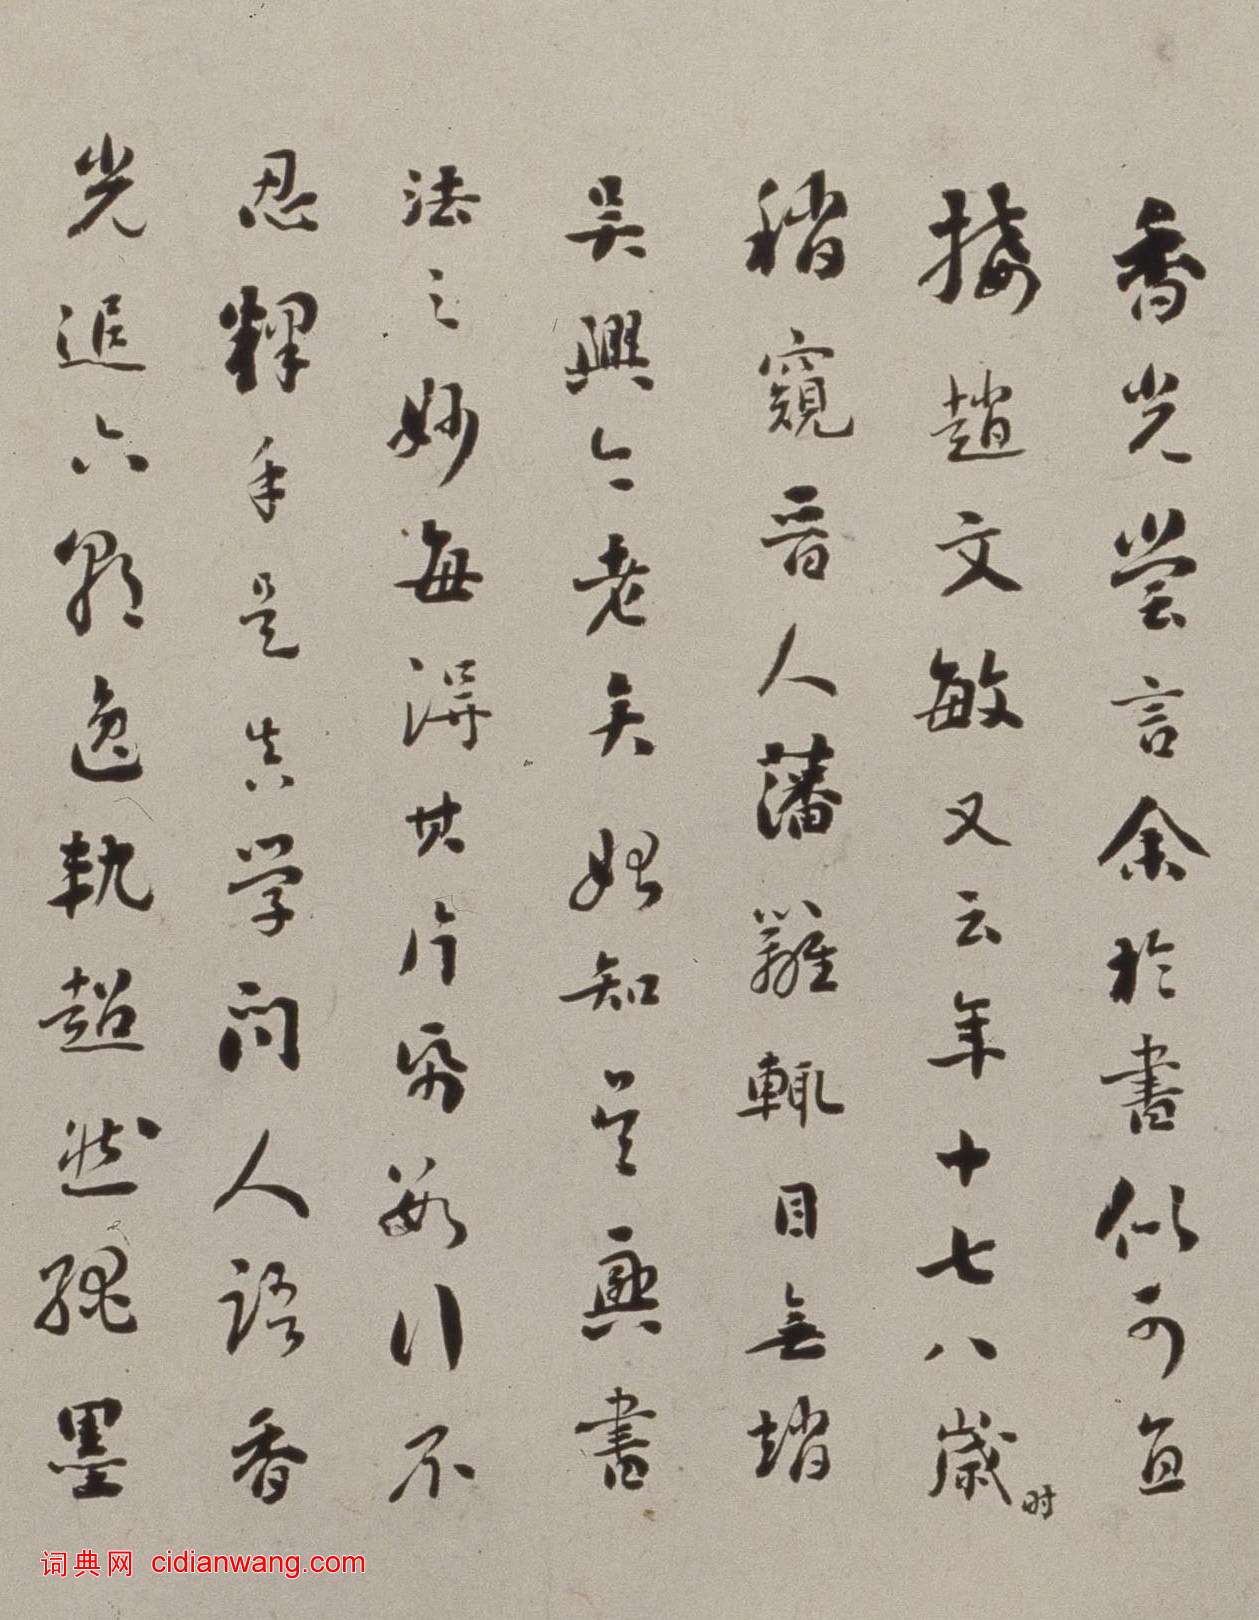 香光嘗言余於書似可直
接趙文敏又云年十七八歲时
稍窺晉人藩籬輒目無趙
吳興今老矣始知吳興書
法之妙每得其片紙數行不
忍釋手是真學問人語香
光追六朝逸執超然繩墨
词典网 cidianwang.com